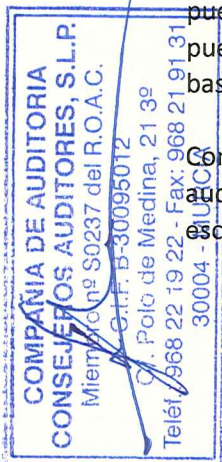 COMPAÑIA DE AUDITORIA
CONSEJEROS AUDITORES, S.L.P.
Miembro nº S0237 del R.O.A.C.
C.I.F. B-30095012
C/. Polo de Medina, 21 3º
Teléf. 968 22 19 22 - Fax: 968 21 91 31
30004 - MURCIA
pue
pue
bas
Con
acu
esc